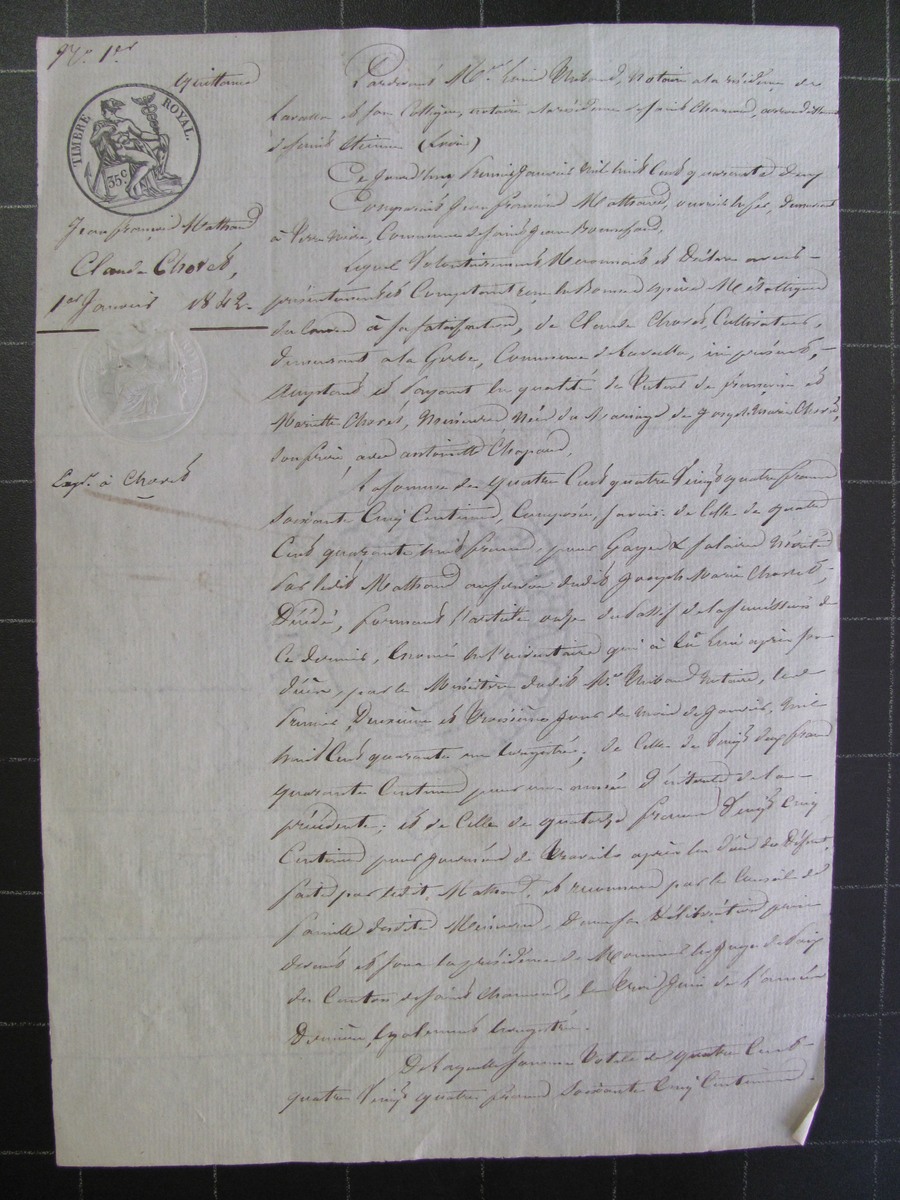 N.º 1er
Quittance
TIMBRE ROYAL.
35 c
Jean françois Mathaud
Claude Chorel,
1er Janvier 1842.
Exp. à Chorel
Pardevant Me Louis Notaire à la résidence de
Lavalla et son Collègue, notaire à la résidence de Saint Chamond, arrondissement
de Saint Etienne (Loire)
Ce Jourd'huy Premier Janvier Mil huit Cent quarante deux
Comparait Jean françois Mathaud, demeurant
à Terre Noire, Commune de Saint Jean Bonnefond,
Lequel Volontairement Reconnait et Déclare avoir
présentement et Comptant reçu en Bonnes espèces Métalliques
du Cours à sa satisfaction, de Claude Chorel, Cultivateur,
demeurant à la Commune de Lavalla, ici présent,
acceptant et Payant en qualité de Tuteur de et
Mariette Chorel, Mineures Nées du Mariage de Joseph Marie Chorel,
son frère avec antoinette Chapard,
La Somme de Quatre Cent quatre Vingt quatre francs
soixante Cinq Centimes, Composée, savoir: de Celle de quatre
Cent quarante huit francs, pour Gages & salaires Mérités
Par ledit Mathaud au service dudit Joseph Marie Chorel,
Décédé, formant l'article onze du Passif de la succession de
Ce dernier, Enoncé en l'inventaire qui a été fait après son
décès, par le Ministère dudit Me Notaire, les
Premier, Deuxième et Troisième Jours du Mois de Janvier, Mil
huit Cent quarante un Enregistré; de Celle de Vingt deux francs
quarante Centimes pour une année d'intérêts de la
précédente; et de Celle de quatorze francs Vingt Cinq
Centimes pour Journées de Travails après le décès du Défunt,
faites par ledit Mathaud, et reconnues par le Conseil de
famille desdites Mineures, Dans sa Délibération prise
devant et sous la présidence de Monsieur le Juge de Paix
du Canton de Saint Chamond, le Trois Juin de l'année
Dernière, également Enregistrée.
De laquelle somme Totale de quatre Cent
quatre Vingt quatre francs Soixante Cinq Centimes